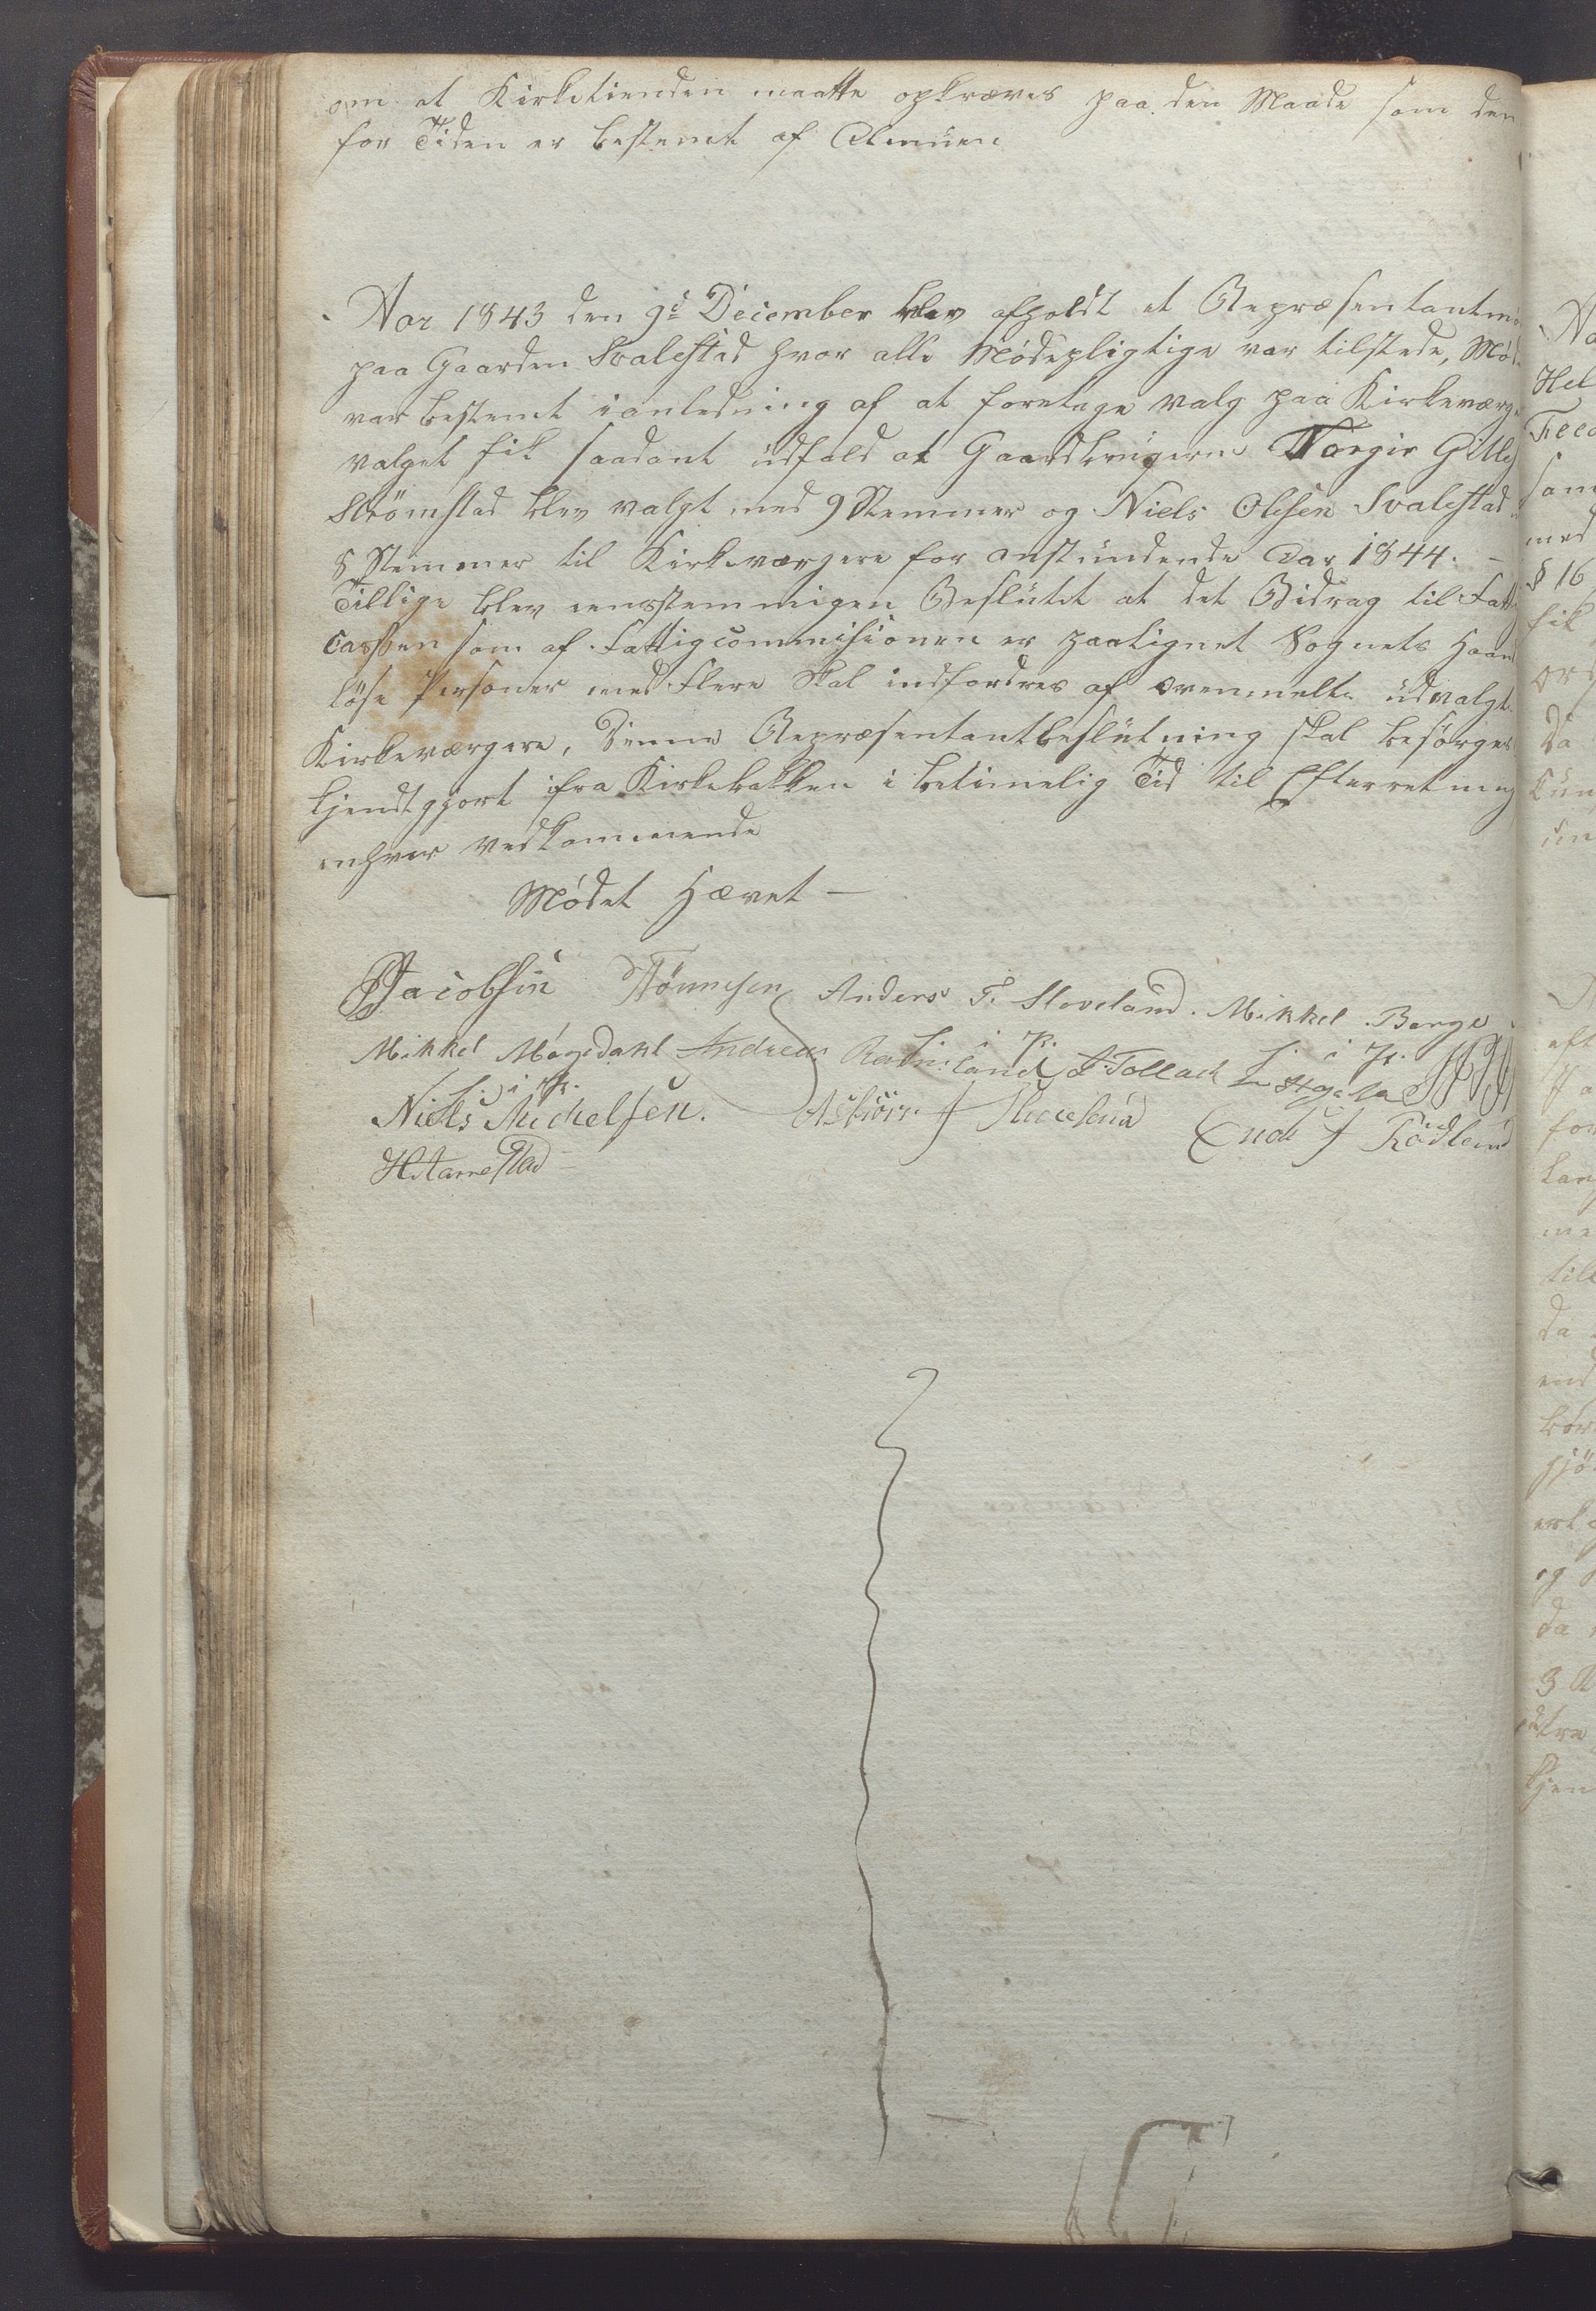 om at Kirketienden maatte opkræves paa den Maade som den
for Tiden er bestemt af Almuen
Aar 1843 den 9de December blev afholdt et Repræsentantmø
paa Gaarden Svalestad hvor alle Mødepligtige var tilstede, Mød
var bestemt i anledning af at foretage valg paa Kirkeværge
valget fik saadant udfald at Gaardbrugerne Torgir Gitle
Strømstad blev valgt med 9 Stemmer og Niels Olesen Svalestad
8 Stemmer til Kirkeværgere for anstundende Aar 1844. –
Tillige blev eenstemmigen Beslutet at det Bidrag til Fatti
cassen som af Fattigcommisionen er paalignet Sognets Haand
løse Personer med Flere Skal indfordres af ovenmelte udvalgt
Kirkeværgere, Denne Repræsentantbeslutning skal besørges
kjendtgjort fra Kirkebakken i betimelig Tid til Efterretning
enhver vedkommende
Mødet Hævet –
Jacobsen Tønnesen Anders T. Sloveland. Mikkel Berge
Mikkel Møgedahl Andreas Refsland J. Tollach
Niels Mickelsen. Asbiørn J Enok J Rødland
H Tarrestad